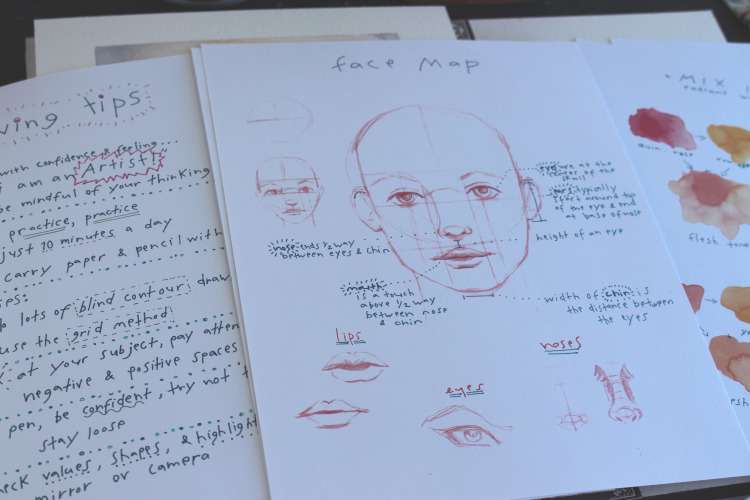 wing tips
with confidence & feeling
i am an Artist!
be mindful of your thinking
practice, practice
just 10 minutes a day
carry paper & pencil with
lots of blind contour draw
use the grid method
at your subject, pay atten
negative & positive spaces
pen, be confident, try not t
stay loose
eck values, shapes, & highlight
mirror or camera
face map
eyes are at the
center of the
skull
ears typically
start around top
of the eye & end
at base of nose
nose ends 1/2 way
between eyes & chin
height of an eye
mouth
is a touch
above 1/2 way
between nose
& chin
width of chin is
the distance between
the eyes
lips
eyes
noses
MIX
radiant
flesh tone